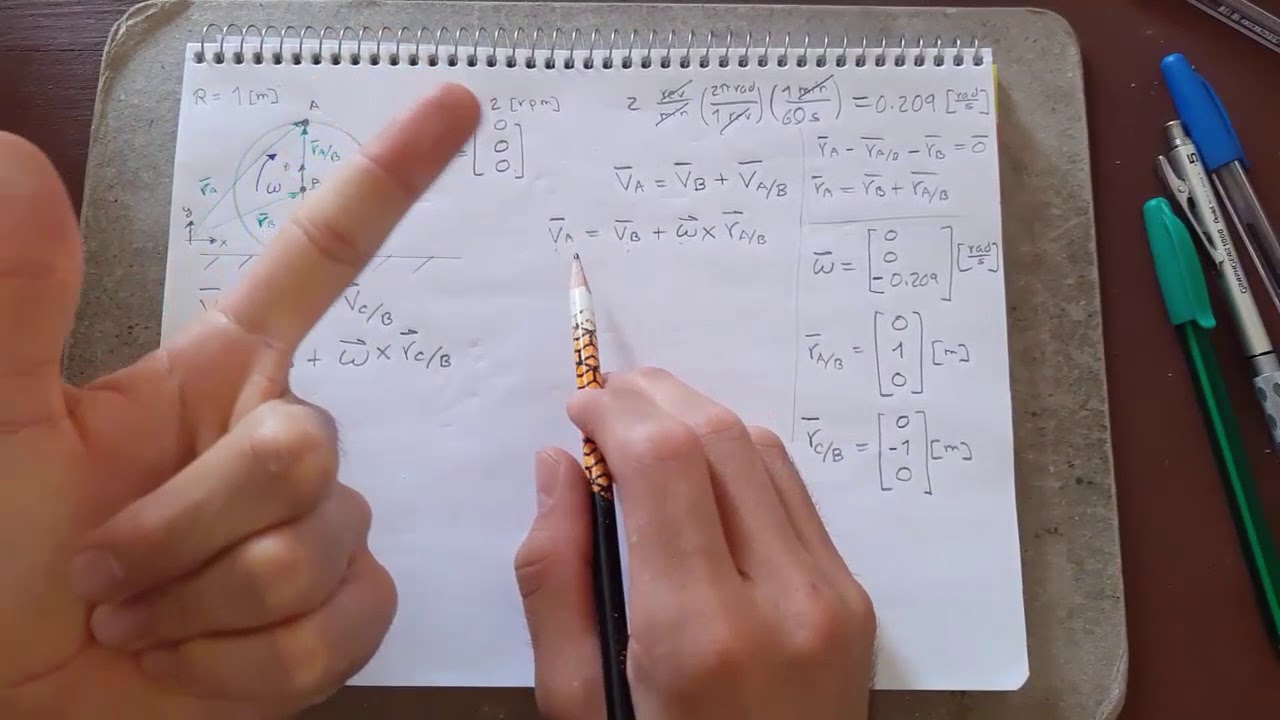 R = 1 [m]
A
r̄A/B
ω
B
r̄A
r̄B
y
x
2 [rpm]
= [0 0 0]
2 rev/min (2π rad/1 rev) (1 min/60 s) = 0.209 [rad/s]
V̄A = V̄B + V̄A/B
V̄A = V̄B + ω⃗ × r̄A/B
r̄A - r̄A/B - r̄B = 0̄
r̄A = r̄B + r̄A/B
ω̄ = [0 0 -0.209] [rad/s]
r̄A/B = [0 1 0] [m]
r̄C/B = [0 -1 0] [m]
V̄C/B
+ ω⃗ × r⃗C/B